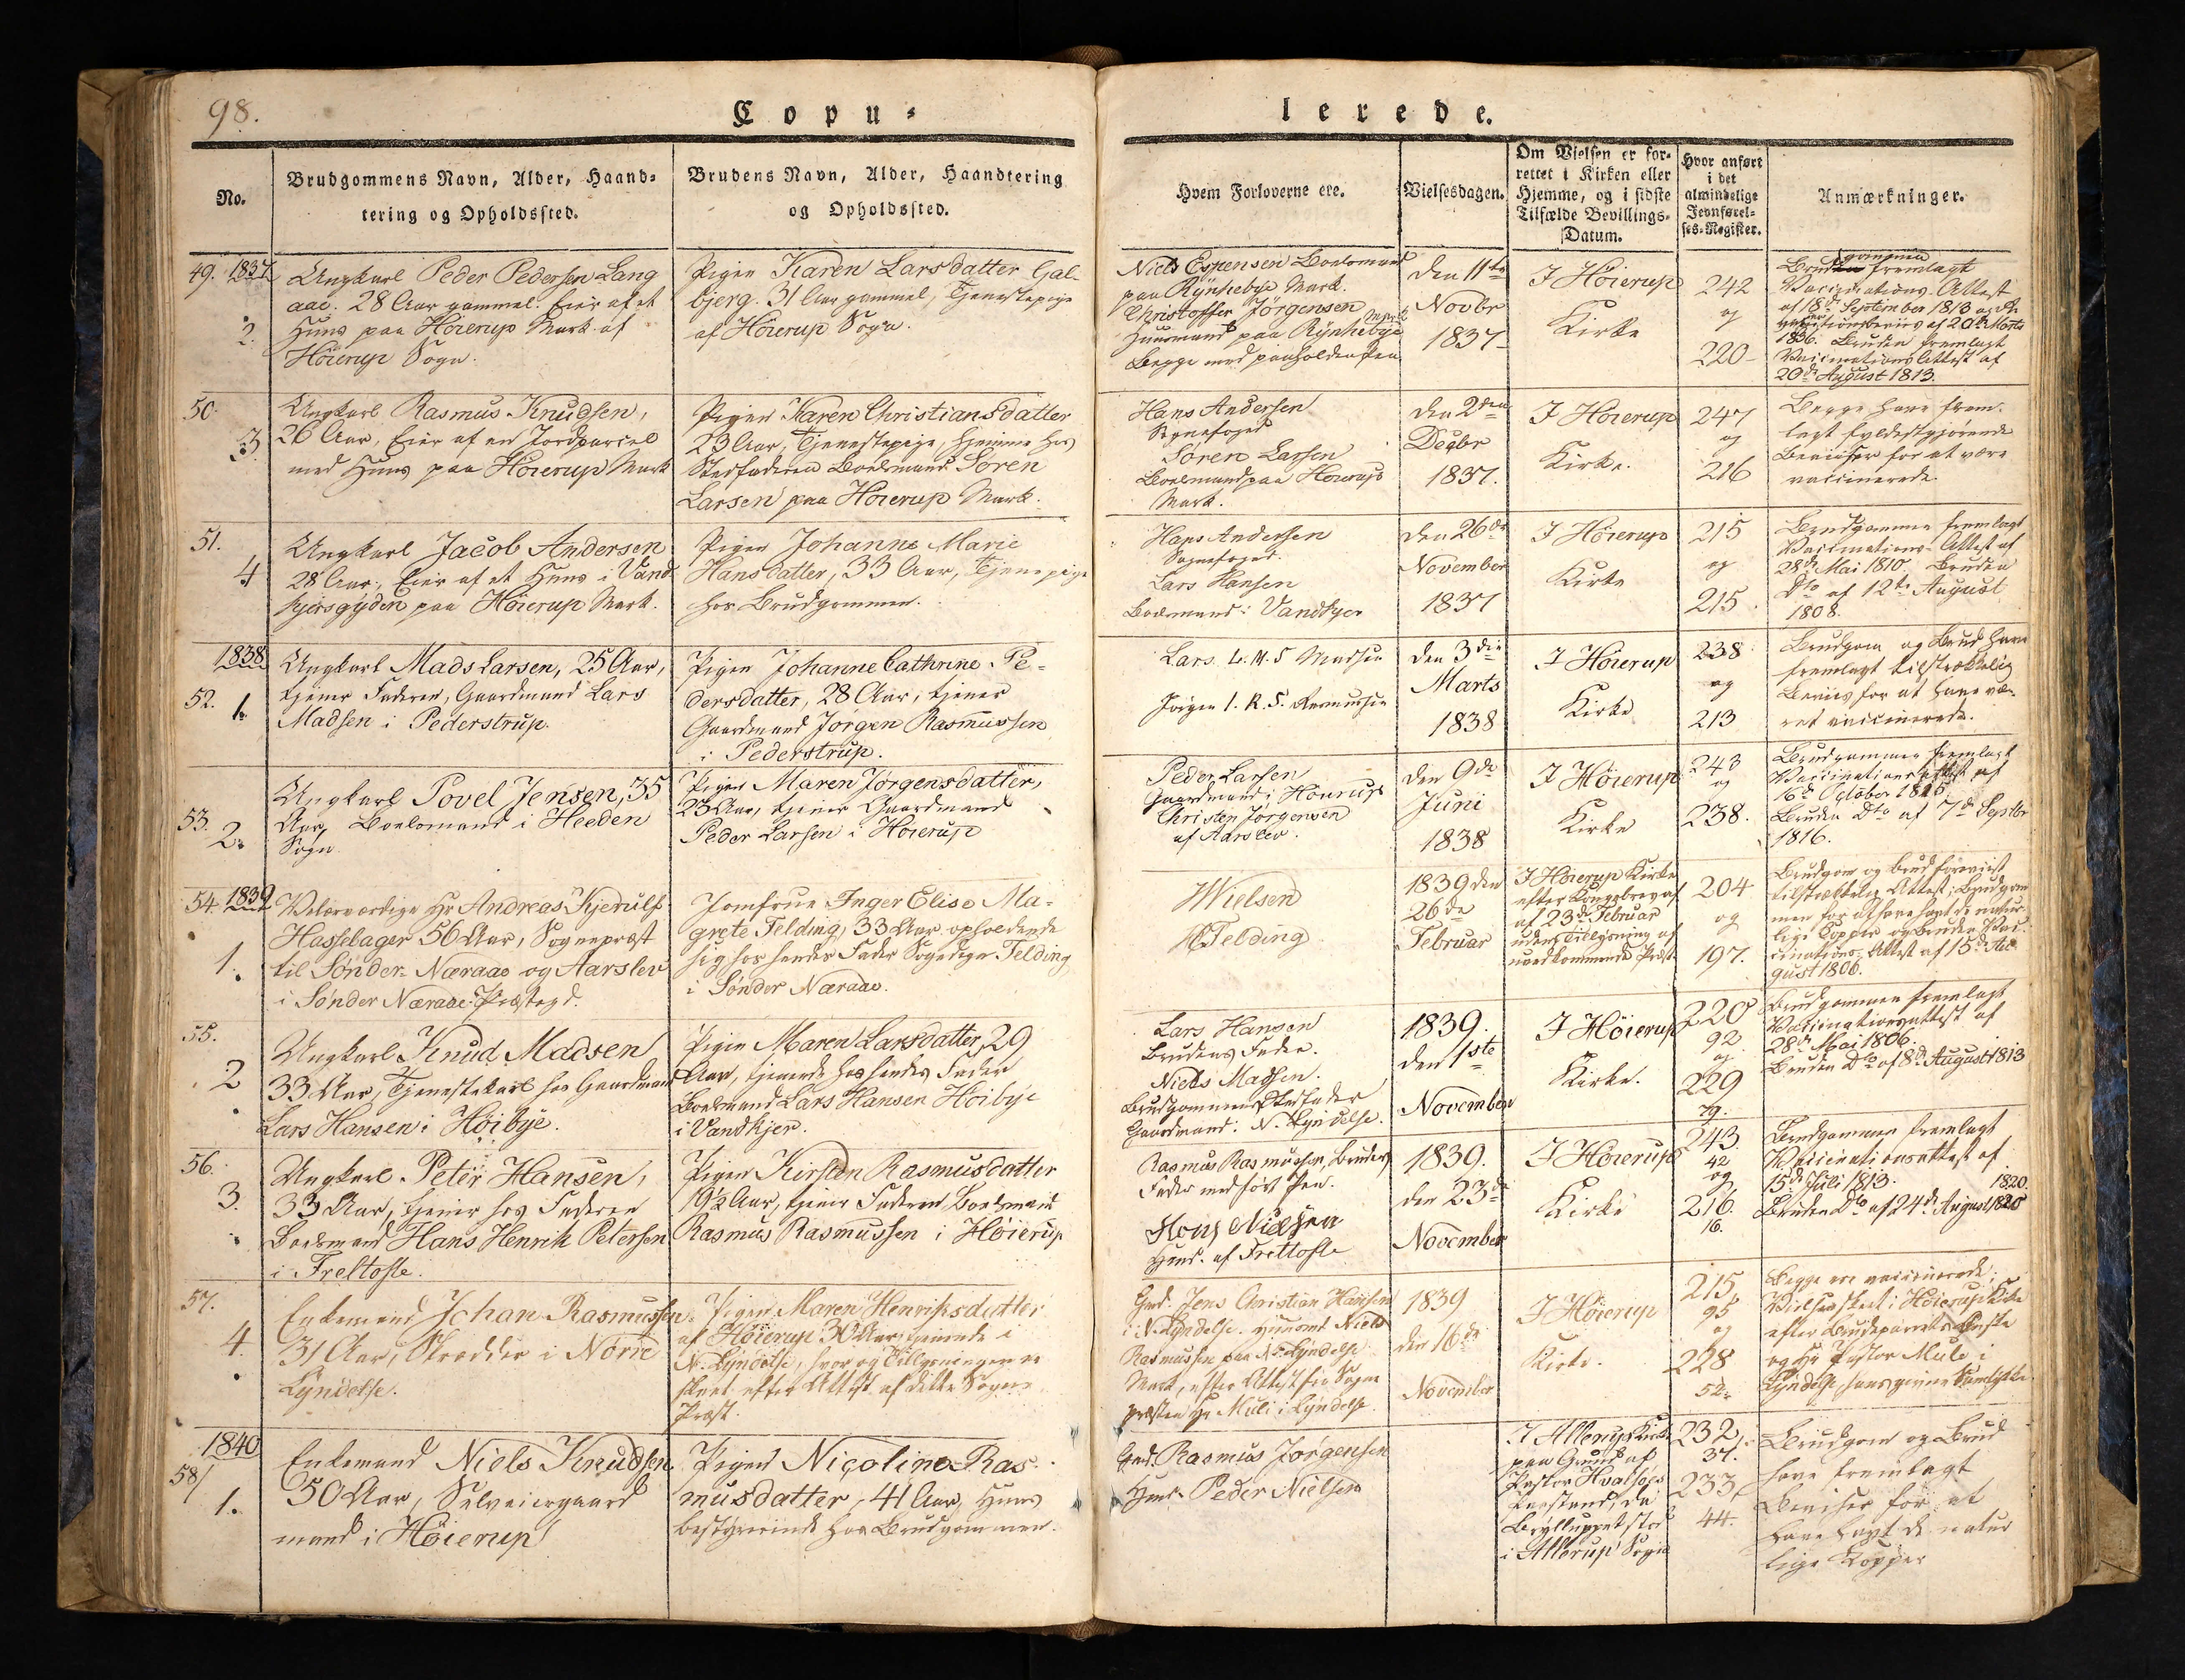 98.
Copu-
lerede.
No.
Brudgommens Navn, Alder, Haand-
tering og Opholdssted.
Brudens Navn, Alder, Haandtering
og Opholdssted.
Hvem Forloverne ere.
Vielsesdagen.
Om Vielsen er for-
rettet i Kirken eller
Hjemme, og i sidste
Tilfælde Bevillings-
Datum.
Hvor anført
i det
almindelige
Jevnførel-
ses-Register.
Anmærkninger.
49. 1837
2.
Ungkarl Peder Pedersen Lang
aae. 28 Aar gammel. Eier af et
Huus paa Höierup Mark af
Höierup Sogn.
Pigen Karen Larsdatter Gal-
bjerg. 31 Aar gammel, Tjenestepige
af Höierup Sogn.
Niels Espensen Boelsmand
paa Rynkebye Mark.
Christoffer Jørgensen
Huusmand paa Rynkebye Mark
Begge med paaholden Pen
den 11te
Novbr
1837
I Höierup
Kirke
242
og
220
Brudgommen fremlagt
Vaccinations Attest
af 18de September 1813 og
af 20de Marts
1836. Bruden fremlagt
Vaccinations Attest af
20de August 1813.
50.
3.
Ungkarl Rasmus Knudsen,
26 Aar, Eier af en Jordparcel
med Huus paa Höierup Mark
Pigen Karen Christiansdatter
23 Aar, Tjenestepige, hjemme hos
Stedfaderen Boelsmand Søren
Larsen paa Höierup Mark.
Hans Andersen
Sognefoged
Søren Larsen
Boelsmand paa Höierup
Mark.
den 2den
Decbr
1837.
I Höierup
Kirke.
247
og
216
Begge have frem-
lagt fyldestgjørende
Beviser for at være
vaccinerede.
51.
4
Ungkarl Jacob Andersen
28 Aar, Eier af et Huus i Vand
kjærsgyden paa Höierup Mark.
Pigen Johanne Marie
Hansdatter, 33 Aar, Tjenepige
hos Brudgommen.
Hans Andersen
Sognefoged.
Lars Hansen
Boelsmand i Vandkjer
den 26de
November
1837
I Höierup
Kirke
215
og
215.
Brudgommen fremlagt
Vaccinations-Attest af
28de Mai 1810. Bruden
Dto af 12te August
1808.
1838
52. 1.
Ungkarl Mads Larsen, 25 Aar,
tjener Faderen, Gaardmand Lars
Madsen i Pederstrup.
Pigen Johanne Cathrine Pe-
dersdatter, 28 Aar, tjener
Gaardmand Jørgen Rasmussen
i Pederstrup.
Lars L. M. S Madsen
Jörgen I. R. S. Rasmussen
den 3die
Marts
1838
I Höierup
Kirke
238
og
213
Brudgom og Brud have
fremlagt tilstrækkelig
Beviis for at have væ-
ret vaccinerede.
53. 2.
Ungkarl Povel Jensen, 35
Aar, Boelsmand i Heeden
Sogn
Pigen Maren Jørgensdatter,
23 Aar, tjener Gaardmand
Peder Larsen i Höierup
Peder Larsen
Gaardmand i Höierup
Christen Jørgensen
af Aarslev.
den 9de
Juni
1838
I Höierup
Kirke
243
og
238.
Brudgommen fremlagt
Vaccinations Attest af
16de October 1815.
Bruden Dto af 7de Septbr
1816.
54. 1839
1.
Velærværdige Hr Andreas Kjerulf
Hasselager 56 Aar, Sognepræst
til Sønder-Næraae og Aarslev
i Sønder Næraae Præstegd.
Jomfrue Inger Elise Ma-
grete Felding, 33 Aar opholdende
sig hos hendes Fader Sognedegn Felding
i Sønder Næraae.
Nielsen
Felding
1839 den
26de
Februar
I Höierup Kirke
efter Kongebrev af
af 23de Februar
uden Tillysning af
vedkommende Præst
204
og
197.
Brudgom og Brud foreviist
tilstrækkelig Attest; Brudgom
men for at have havt de natur-
lige Kopper og Bruden Vac-
cinations-Attest af 15de Au-
gust 1806.
55.
2
Ungkarl Knud Madsen
33 Aar, Tjenestekarl hos Gaardmand
Lars Hansen i Höibye.
Pigen Maren Larsdatter, 29
Aar, tjenende hos hendes Fader
Boelsmand Lars Hansen Höibye
i Vandkjer.
Lars Hansen
Brudens Fader.
Niels Madsen.
Brudgommens Stedfader
Gaardmand i N. Lyndelse.
1839.
den 1ste
November
I Höierup
Kirke.
220
92
og
229
79.
Brudgommen fremlagt
Vaccinationsattest af
28de Mai 1806.
Bruden Dto af 8de August 1813
56.
3.
Ungkarl Peter Hansen,
33 Aar, tjener hos Faderen
Boelsmand Hans Henrik Petersen
i Freltofte.
Pigen Kirsten Rasmusdatter
19½ Aar, tjener Faderen Boelsmand
Rasmus Rasmussen i Höierup
Rasmus Rasmussen, Brudens
Fader med ført Pen.
Hans Nielsen
Huusmd. af Freltofte
1839.
den 23de
November
I Höierup
Kirke
243
42
og
216.
16.
Brudgommen fremlagt
Vaccinationsattest af
15de Juli 1813.
1820.
Bruden Dto af 24de August 1820
57.
4.
Enkemand Johan Rasmussen
31 Aar, Skrædder i Nörre
Lyndelse.
Pigen Maren Henriksdatter
af Höierup 30 Aar tjenende i
N. Lyndelse, hvor og Tillysningen er
skeet efter Attest af dette Sogns
Præst.
Gmd. Jens Christian Hansen
i N. Lyndelse. Huusmd Niels
Rasmussen paa N. Lyndelse
Mark, efter Attest fra Sogne
præsten Hr Mule i Lyndelse.
1839
den 16de
November
I Höierup
Kirke.
215
95
og
228
52.
Begge ere vaccinerede;
Vielsen skeet i Höierup Kirke
efter Brudeparrets Ønske
og Hr Pastor Mule i
Lyndelse hans givne Samtykke.
1840
58/
1.
Enkemand Niels Knudsen
50 Aar, Selveiergaard
mand i Höierup
Pigen Nicoline Ras-
musdatter, 41 Aar, Huus
bestyrerinde hos Brudgommen.
Gmd. Rasmus Jørgensen
Hmd. Peder Nielsen
I Allerup Kirke
paa Grund af
Pastor Hvalsøes
da
Brylluppet stod
i Allerup Sogn
232,
37.
233,
44.
Brudgom og Brud
have fremlagt
Beviser for at
have havt de natur
lige Kopper